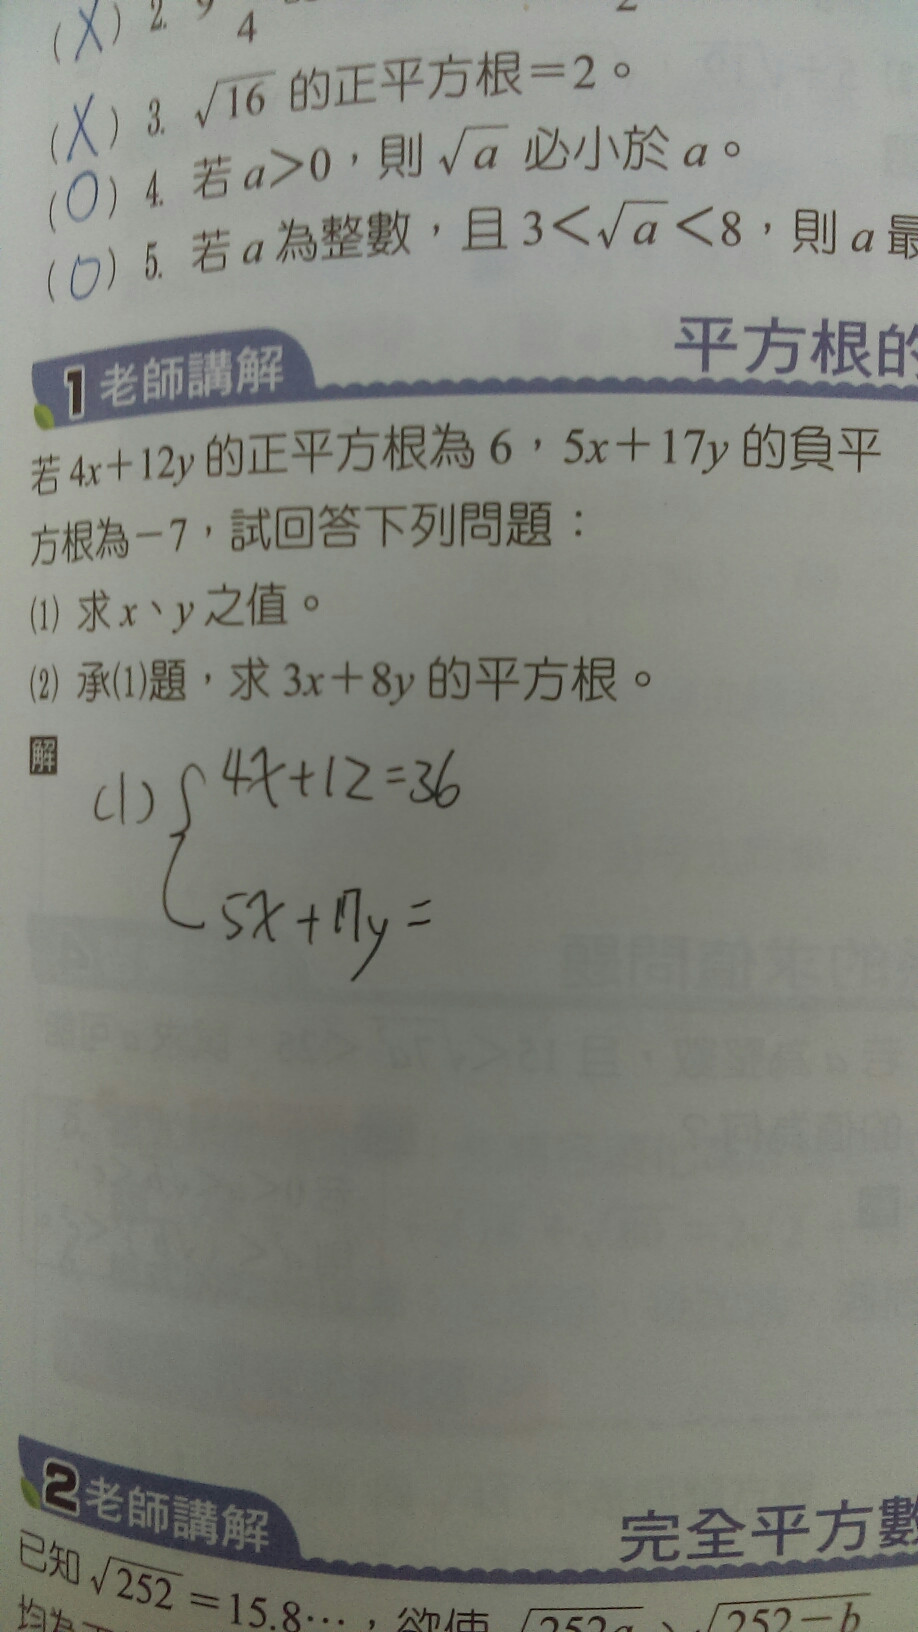 (X) 2. 9 4 2
(X) 3. √16 的正平方根=2。
(O) 4. 若 a>0,則 √a 必小於 a。
(O) 5. 若 a 為整數,且 3<√a<8,則 a 最
平方根的
1 老師講解
若 4x+12y 的正平方根為 6,5x+17y 的負平
方根為-7,試回答下列問題:
(1) 求 x、y 之值。
(2) 承(1)題,求 3x+8y 的平方根。
解
(1) { 4x+12=36
5x+17y=
2 老師講解
完全平方數
已知 √252=15.8…,欲使 √252a、√252-b
均為